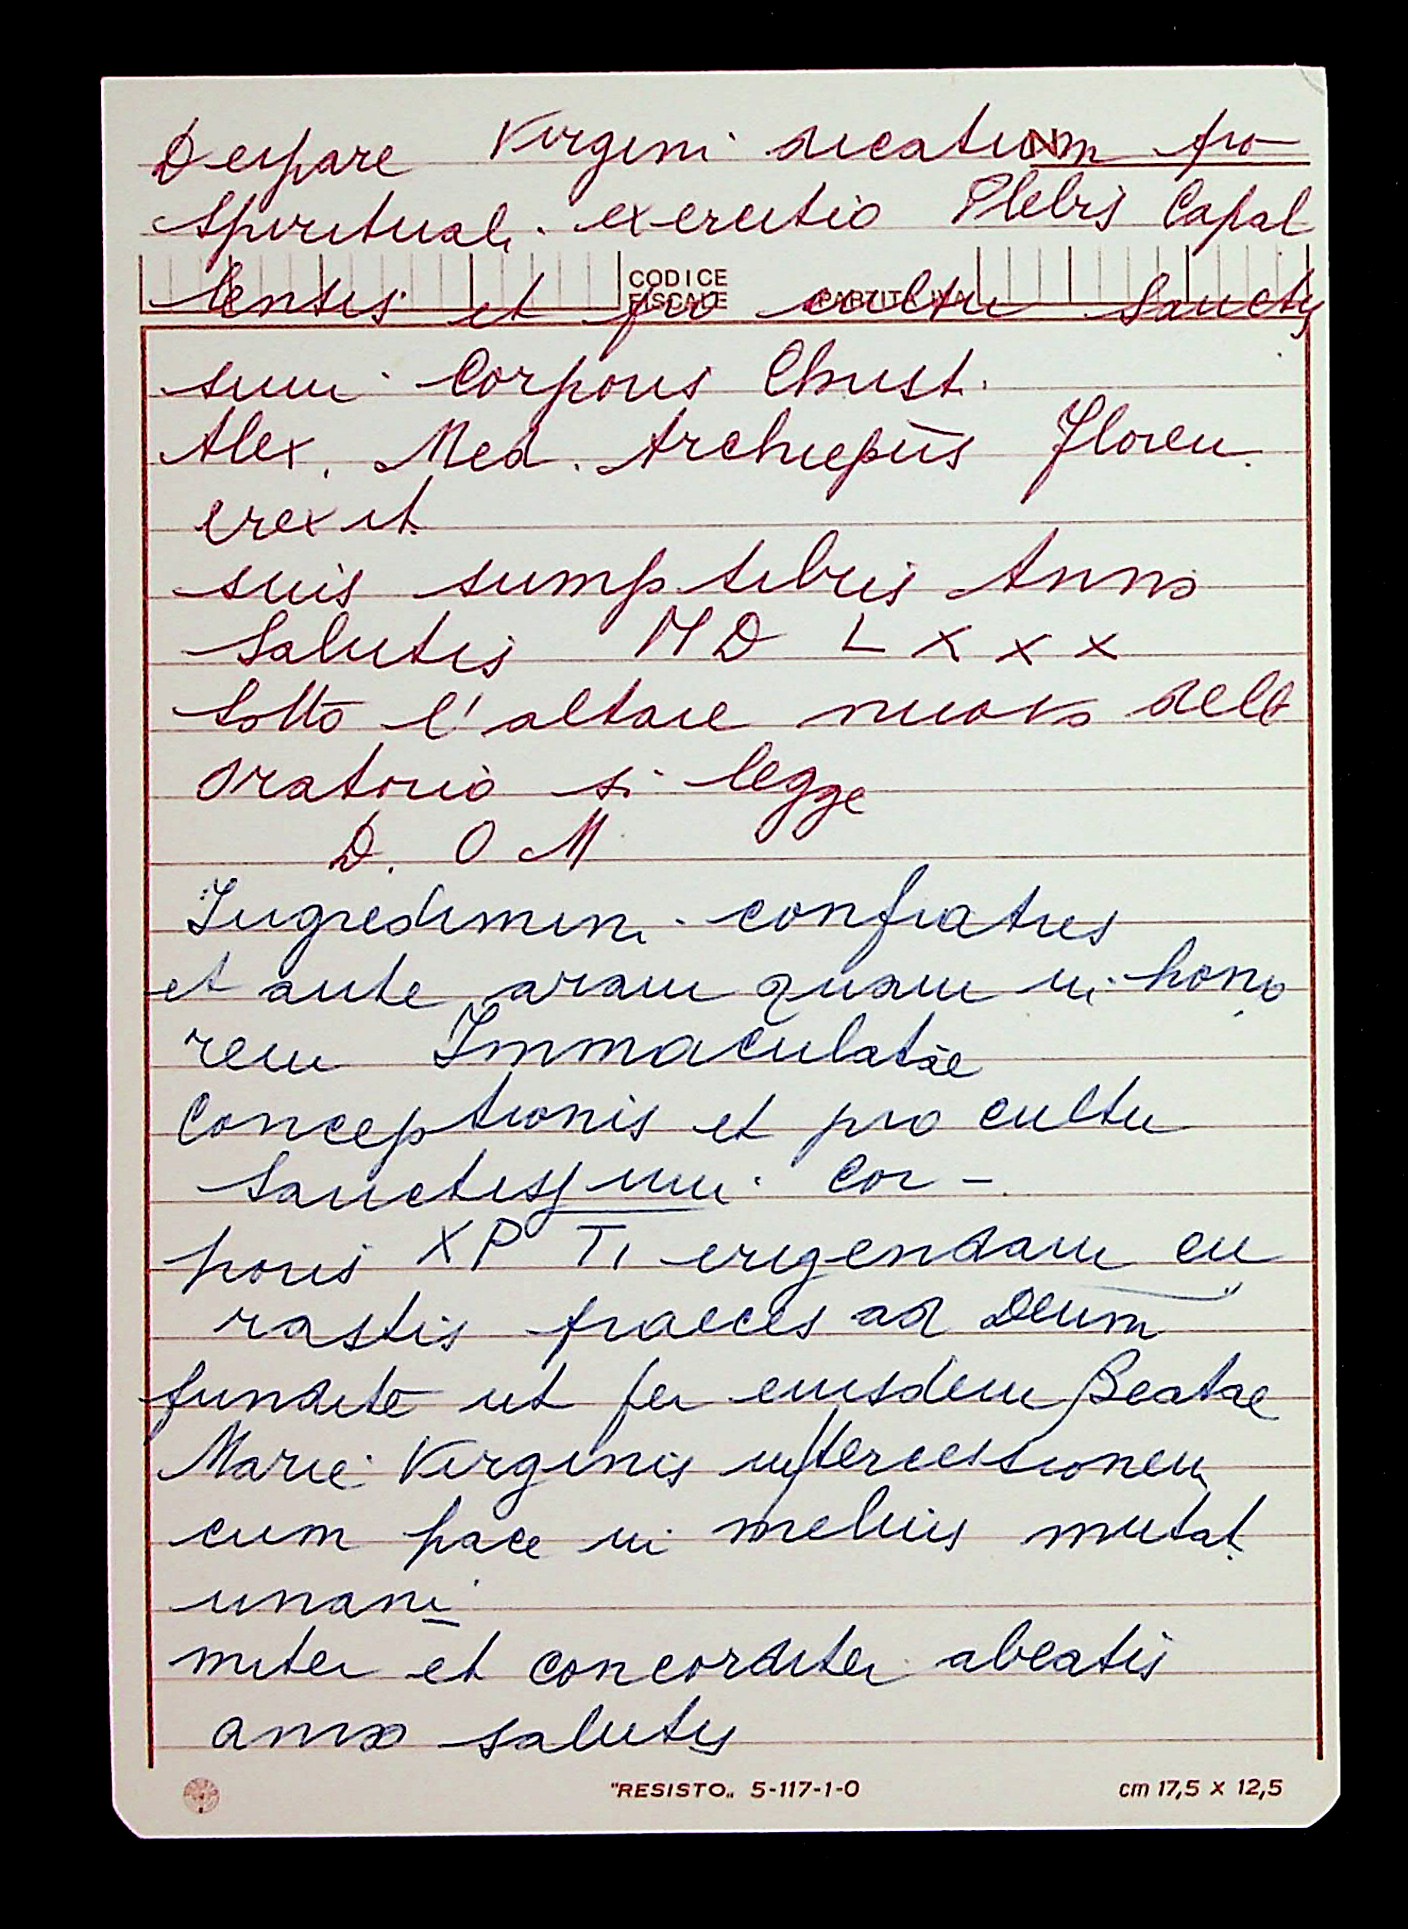 Deipare Virgini dicatum pro
spirituali exercitio Plebis Capal
CODICE
FISCALE PARTITA IVA
lensis et pro cultu Sanctis
simi Corporis Christi
Alex. Med. Archiepūs Floren.
erexit
suis sumptibus Anno
Salutis MD LXXX
Sotto l'altare nuovo dell
oratorio si legge
D. O M
Ingredimini confratres
et ante aram quam in hono
rem Immaculatae
Conceptionis et pro cultu
Sanctissimi Cor-
poris XP TI erigendam cu
rastis praeces ad Deum
fundite ut per eiusdem Beatae
Marie Virginis intercessionem
cum pace in melius mutat
unani
miter et concorditer abeatis
anno salutis
"RESISTO" 5-117-1-0 cm 17,5 x 12,5